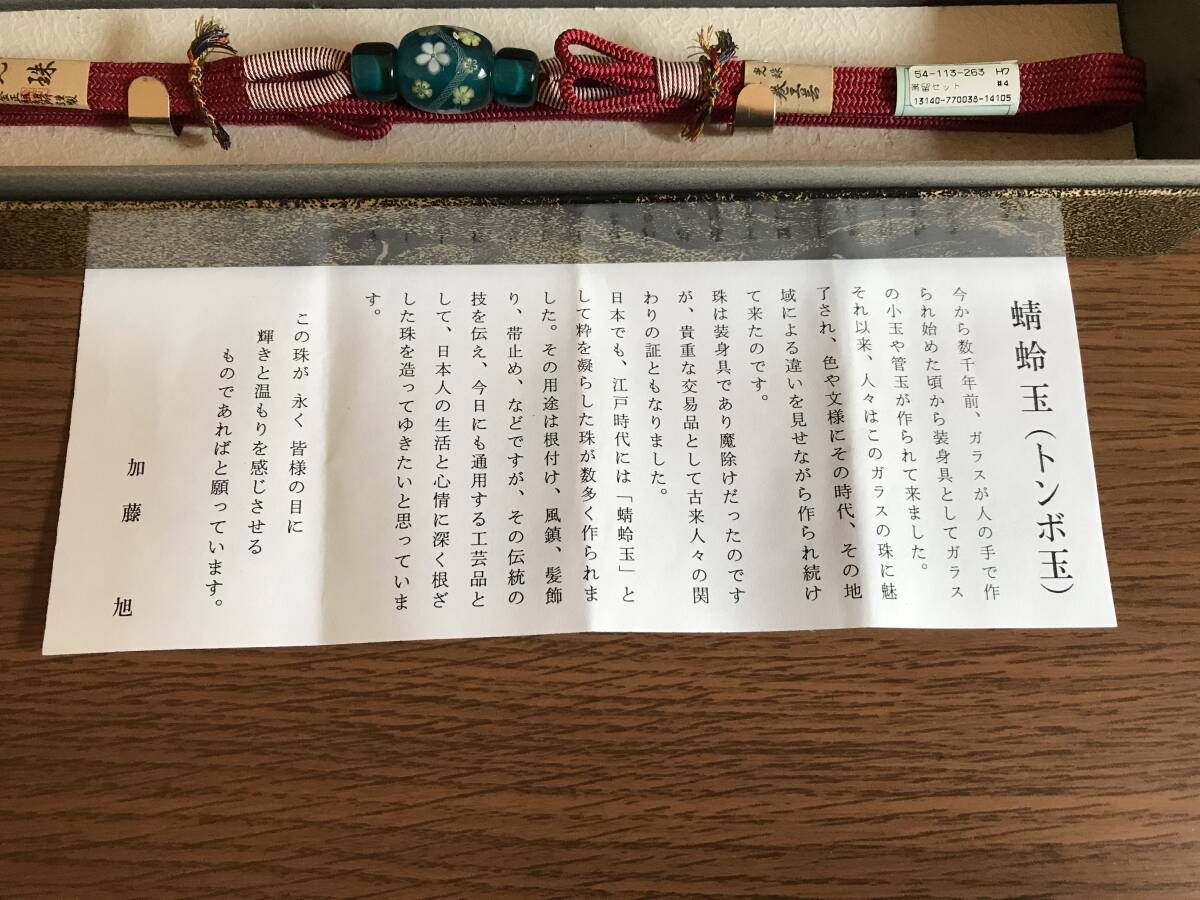 54-113-263 H7
帯留セット #4
13140-770038-14105
蜻蛉玉(トンボ玉)
今から数千年前、ガラスが人の手で作
られ始めた頃から装身具としてガラス
の小玉や管玉が作られて来ました。
それ以来、人々はこのガラスの珠に魅
了され、色や文様にその時代、その地
域による違いを見せながら作られ続け
て来たのです。
珠は装身具であり魔除けだったのです
が、貴重な交易品として古来人々の関
わりの証ともなりました。
日本でも、江戸時代には「蜻蛉玉」と
して粋を凝らした珠が数多く作られま
した。その用途は根付け、風鎮、髪飾
り、帯止め、などですが、その伝統の
技を伝え、今日にも通用する工芸品と
して、日本人の生活と心情に深く根ざ
した珠を造ってゆきたいと思っていま
す。
この珠が 永く 皆様の目に
輝きと温もりを感じさせる
ものであればと願っています。
加藤 旭